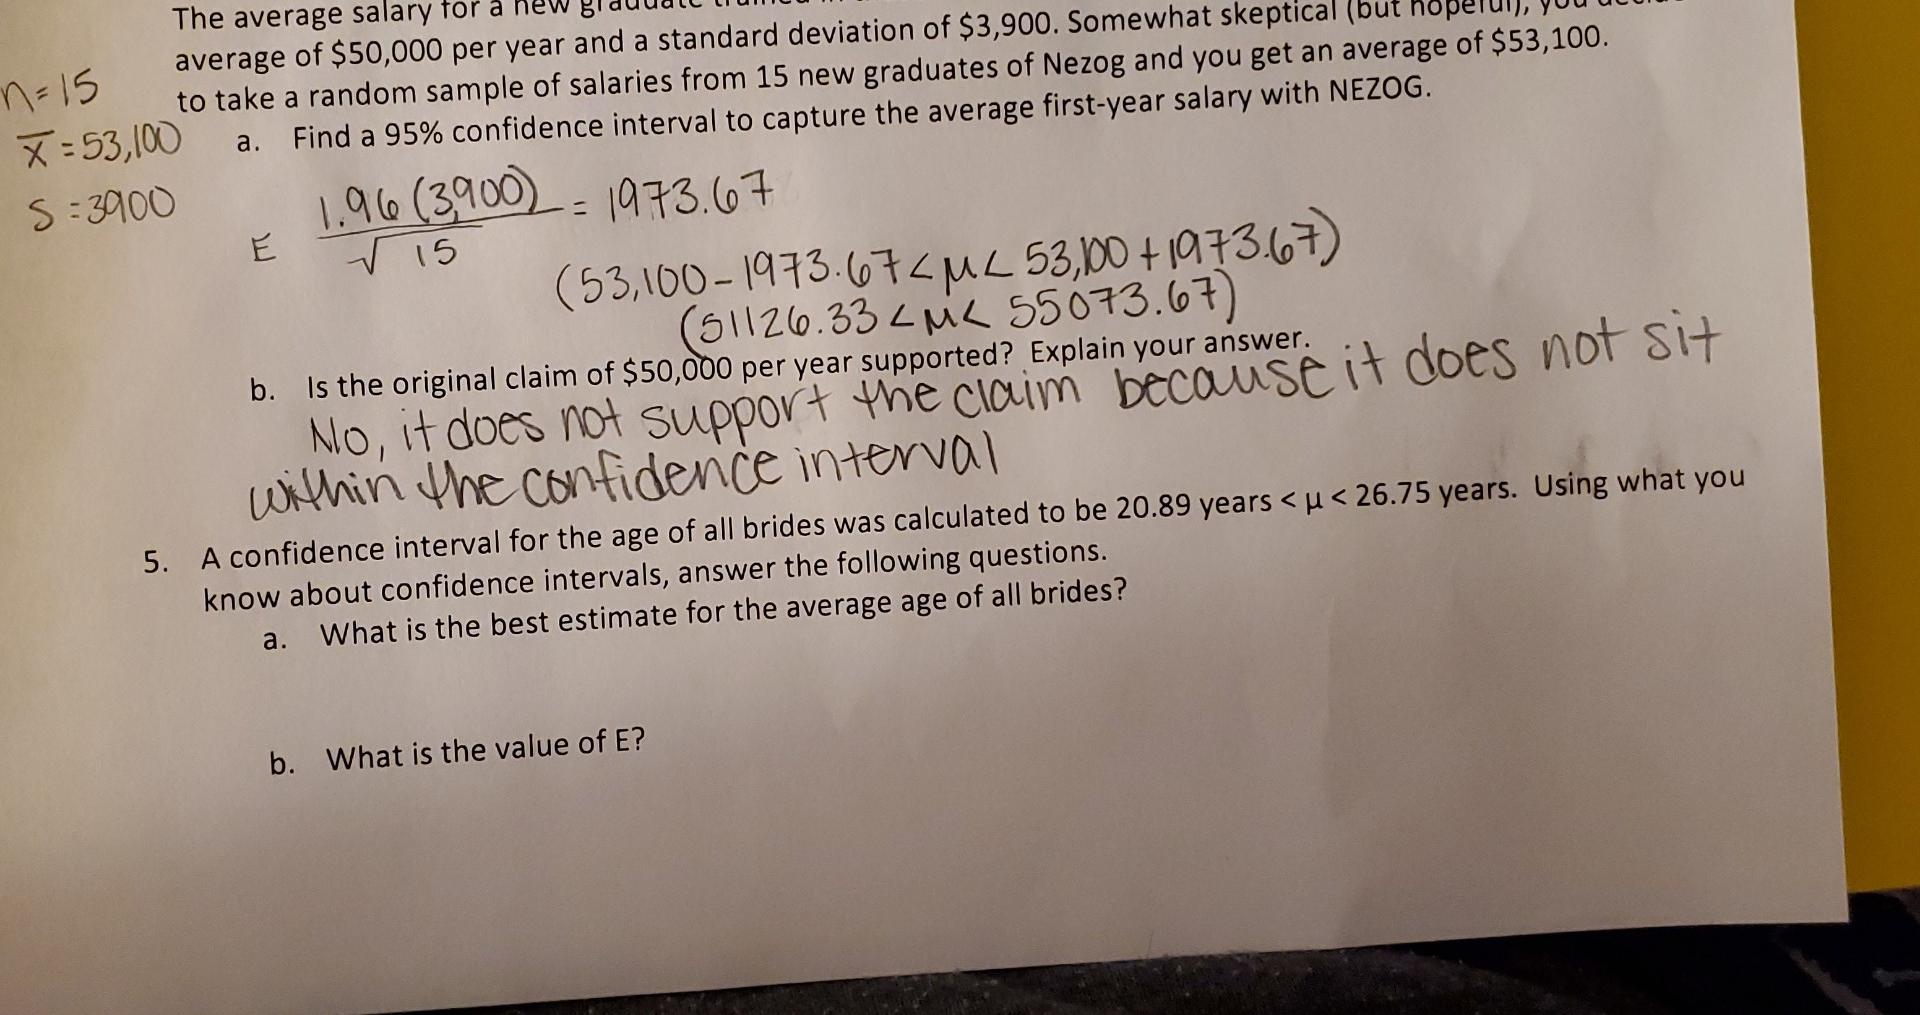 The average salary for a new graduate
average of $50,000 per year and a standard deviation of $3,900. Somewhat skeptical (but hopeful), you
n=15
to take a random sample of salaries from 15 new graduates of Nezog and you get an average of $53,100.
x̅=53,100
a. Find a 95% confidence interval to capture the average first-year salary with NEZOG.
S=3900
E 1.96(3,900)/√15 = 1973.67
(53,100-1973.67<μ< 53,100+1973.67)
(51126.33<μ< 55073.67)
b. Is the original claim of $50,000 per year supported? Explain your answer.
No, it does not support the claim because it does not sit
within the confidence interval
5. A confidence interval for the age of all brides was calculated to be 20.89 years < μ < 26.75 years. Using what you
know about confidence intervals, answer the following questions.
a. What is the best estimate for the average age of all brides?
b. What is the value of E?